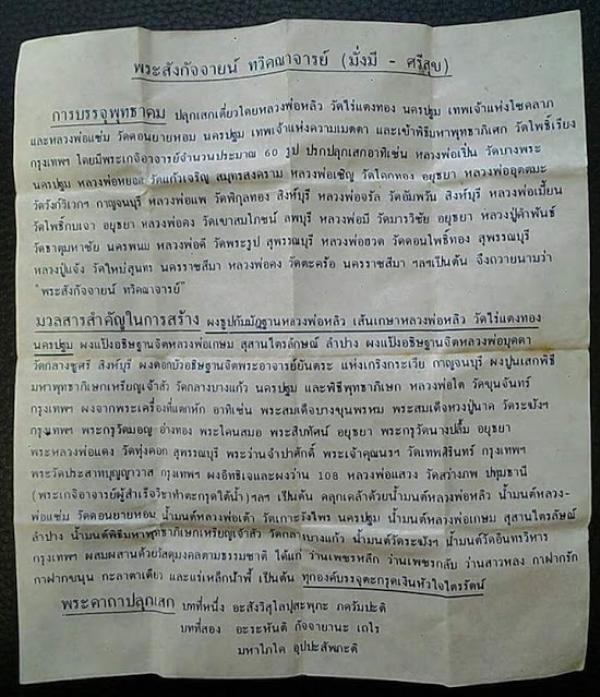 พระสังกัจจายน์ ทวิคณาจารย์ (มั่งมี - ศรีสุข)
การบรรจุพุทธาคม ปลุกเสกเดี่ยวโดยหลวงพ่อหลิว วัดไร่แตงทอง นครปฐม เทพเจ้าแห่งโชคลาภ
และหลวงพ่อแช่ม วัดดอนยายหอม นครปฐม เทพเจ้าแห่งความเมตตา และเข้าพิธีมหาพุทธาภิเศก วัดโพธิ์เรียง
กรุงเทพฯ โดยมีพระเกจิอาจารย์จำนวนประมาณ 60 รูป ปรกปลุกเสกอาทิเช่น หลวงพ่อเปิ่น วัดบางพระ
นครปฐม หลวงพ่อหยอด วัดแก้วเจริญ สมุทรสงคราม หลวงพ่อเชิญ วัดโคกทอง อยุธยา หลวงพ่ออุตตมะ
วัดวังก์วิเวกฯ กาญจนบุรี หลวงพ่อแพ วัดพิกุลทอง สิงห์บุรี หลวงพ่อจรัล วัดอัมพวัน สิงห์บุรี หลวงพ่อเมี้ยน
วัดโพธิ์กบเจา อยุธยา หลวงพ่อคง วัดเขาสมโภชน์ ลพบุรี หลวงพ่อมี วัดมารวิชัย อยุธยา หลวงปู่คำพันธ์
วัดธาตุมหาชัย นครพนม หลวงพ่อดี วัดพระรูป สุพรรณบุรี หลวงพ่อฮวด วัดดอนโพธิ์ทอง สุพรรณบุรี
หลวงปู่แจ้ง วัดใหม่สุนทร นครราชสีมา หลวงพ่อคง วัดตะคร้อ นครราชสีมา ฯลฯเป็นต้น จึงถวายนามว่า
"พระสังกัจจายน์ ทวิคณาจารย์"
มวลสารสำคัญในการสร้าง ผงธูปกัมมัฏฐานหลวงพ่อหลิว เส้นเกษาหลวงพ่อหลิว วัดไร่แตงทอง
นครปฐม ผงแป้งอธิษฐานจิตหลวงพ่อเกษม สุสานไตรลักษณ์ ลำปาง ผงแป้งอธิษฐานจิตหลวงพ่อบุดดา
วัดกลางชูศรี สิงห์บุรี ผงดอกบัวอธิษฐานจิตพระอาจารย์ยันตระ แห่งเกริงกระเวีย กาญจนบุรี ผงปูนเสกพิธี
มหาพุทธาภิเษกเหรียญเจ้าสัว วัดกลางบางแก้ว นครปฐม และพิธีพุทธาภิเษก หลวงพ่อโต วัดขุนจันทร์
กรุงเทพฯ ผงจากพระเครื่องที่แตกหัก อาทิเช่น พระสมเด็จบางขุนพรหม พระสมเด็จหวงปู่นาค วัดระฆังฯ
กรุงเทพฯ พระกรุวัดมอญ อ่างทอง พระโคนสมอ พระสิบทัศน์ อยุธยา พระกรุวัดนางปลื้ม อยุธยา
พระหลวงพ่อแตง วัดทุ่งคอก สุพรรณบุรี พระว่านจำปาศักดิ์ พระเจ้าคุณนรฯ วัดเทพศิรินทร์ กรุงเทพฯ
พระวัดประสาทบุญญาวาส กรุงเทพฯ ผงอิทธิเจและผงว่าน 108 หลวงพ่อแสวง วัดสว่างภพ ปทุมธานี
(พระเกจิอาจารย์ผู้สำเร็จวิชาทำตะกรุดใต้น้ำ)ฯลฯ เป็นต้น คลุกเคล้าด้วยน้ำมนต์หลวงพ่อหลิว น้ำมนต์หลวง-
พ่อแช่ม วัดดอนยายหอม น้ำมนต์หลวงพ่อเต๋า วัดเกาะวังไทร นครปฐม น้ำมนต์หลวงพ่อเกษม สุสานไตรลักษณ์
ลำปาง น้ำมนต์พิธีมหาพุทธาภิเษกเหรียญเจ้าสัว วัดกลางบางแก้ว น้ำมนต์วัดระฆังฯ น้ำมนต์วัดอินทรวิหาร
กรุงเทพฯ ผสมผสานด้วยวัสดุมงคลตามธรรมชาติ ได้แก่ ว่านเพชรหลีก ว่านเพชรกลับ ว่านสาวหลง กาฝากรัก
กาฝากขนุน กะลาตาเดียว และแร่เหล็กน้ำพี้ เป็นต้น ทุกองค์บรรจุตะกรุดเงินหัวใจไตรรัตน์
พระคาถาปลุกเสก บทที่หนึ่ง อะสังวิสุโลปุสะพุภะ ภควัมปะติ
บทที่สอง อะระหันติ กัจจายานะ เถโร
มหาโภโค อุปปะสัพภะติ